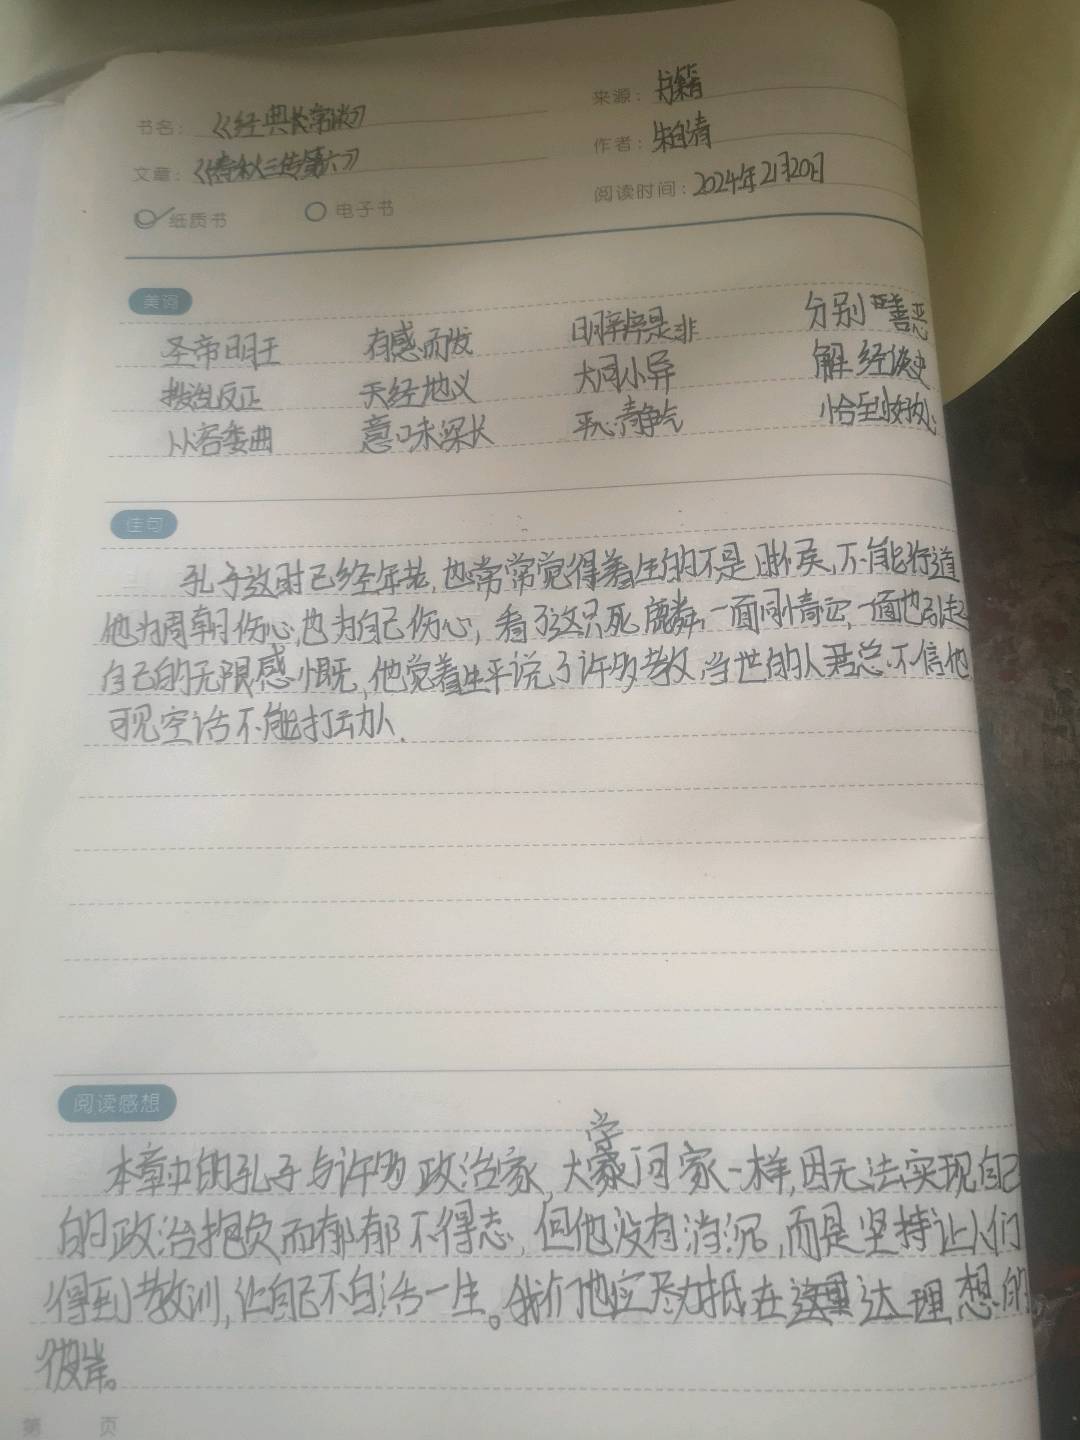 书名：《经典长常谈》
来源：书籍
文章：《春秋三传第六》
作者：朱自清
纸质书 电子书
阅读时间：2024年2月20日
美词
圣帝明王 有感而发 明辨是非 分别善恶
拨乱反正 天经地义 大同小异 解经 史
从容委曲 意味深长 平心静气 恰到好处
佳句
孔子这时已经年老，也常常觉得着生的不是时候，不能行道
他为周朝伤心，也为自己伤心，看了这只死麟，一面同情它，一面也引起
自己的无限感慨，他觉着生平说了许多教，当世的人君总不信他
可见空话不能打动人.
阅读感想
本章中的孔子与许多政治家，大学问家一样，因无法实现自己
的政治抱负而郁郁不得志，但他没有消沉，而是坚持让人们
得到教训，让自己不白活一生。我们也应尽力抵 达理想的
彼岸。
第 页